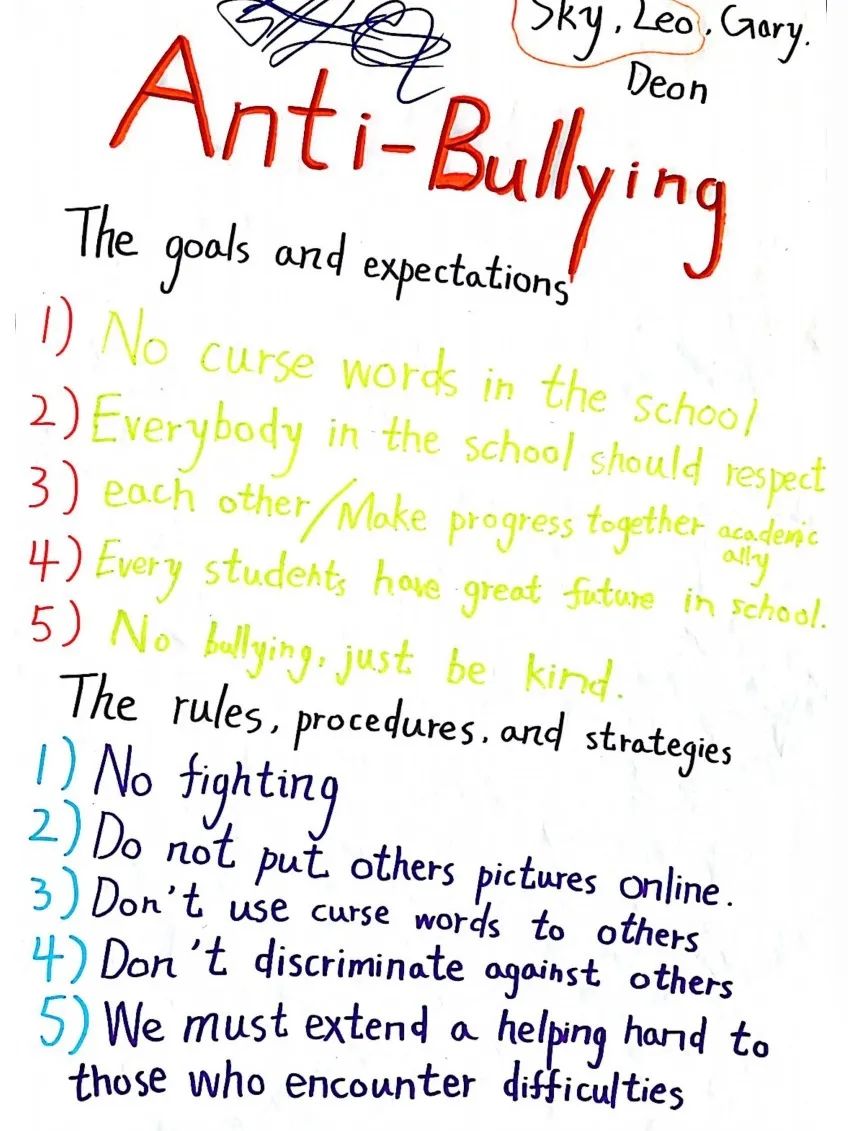 Sky, Leo, Gary.
Deon
Anti-Bullying
The goals and expectations
1) No curse words in the school
2) Everybody in the school should respect
3) each other/Make progress together academic
ally
4) Every students have great future in school.
5) No bullying, just be kind.
The rules, procedures, and strategies
1) No fighting
2) Do not put others pictures online.
3) Don't use curse words to others
4) Don't discriminate against others
5) We must extend a helping hand to
those who encounter difficulties